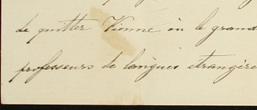 de quitter Vienne où le grand
professeurs de langues étrangère